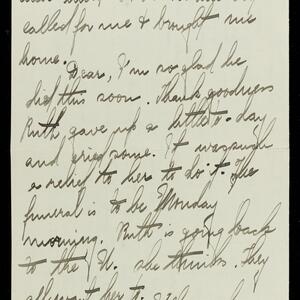 called for me & brought me
home.
Dear, I'm so glad he
did this soon. Thank goodness
Ruth gave up a little to-day
and cried some. It was such
a relief to her to do it. The
funeral is to be Monday
morning. Ruth is going back
to the U. she thinks. They
all want her to